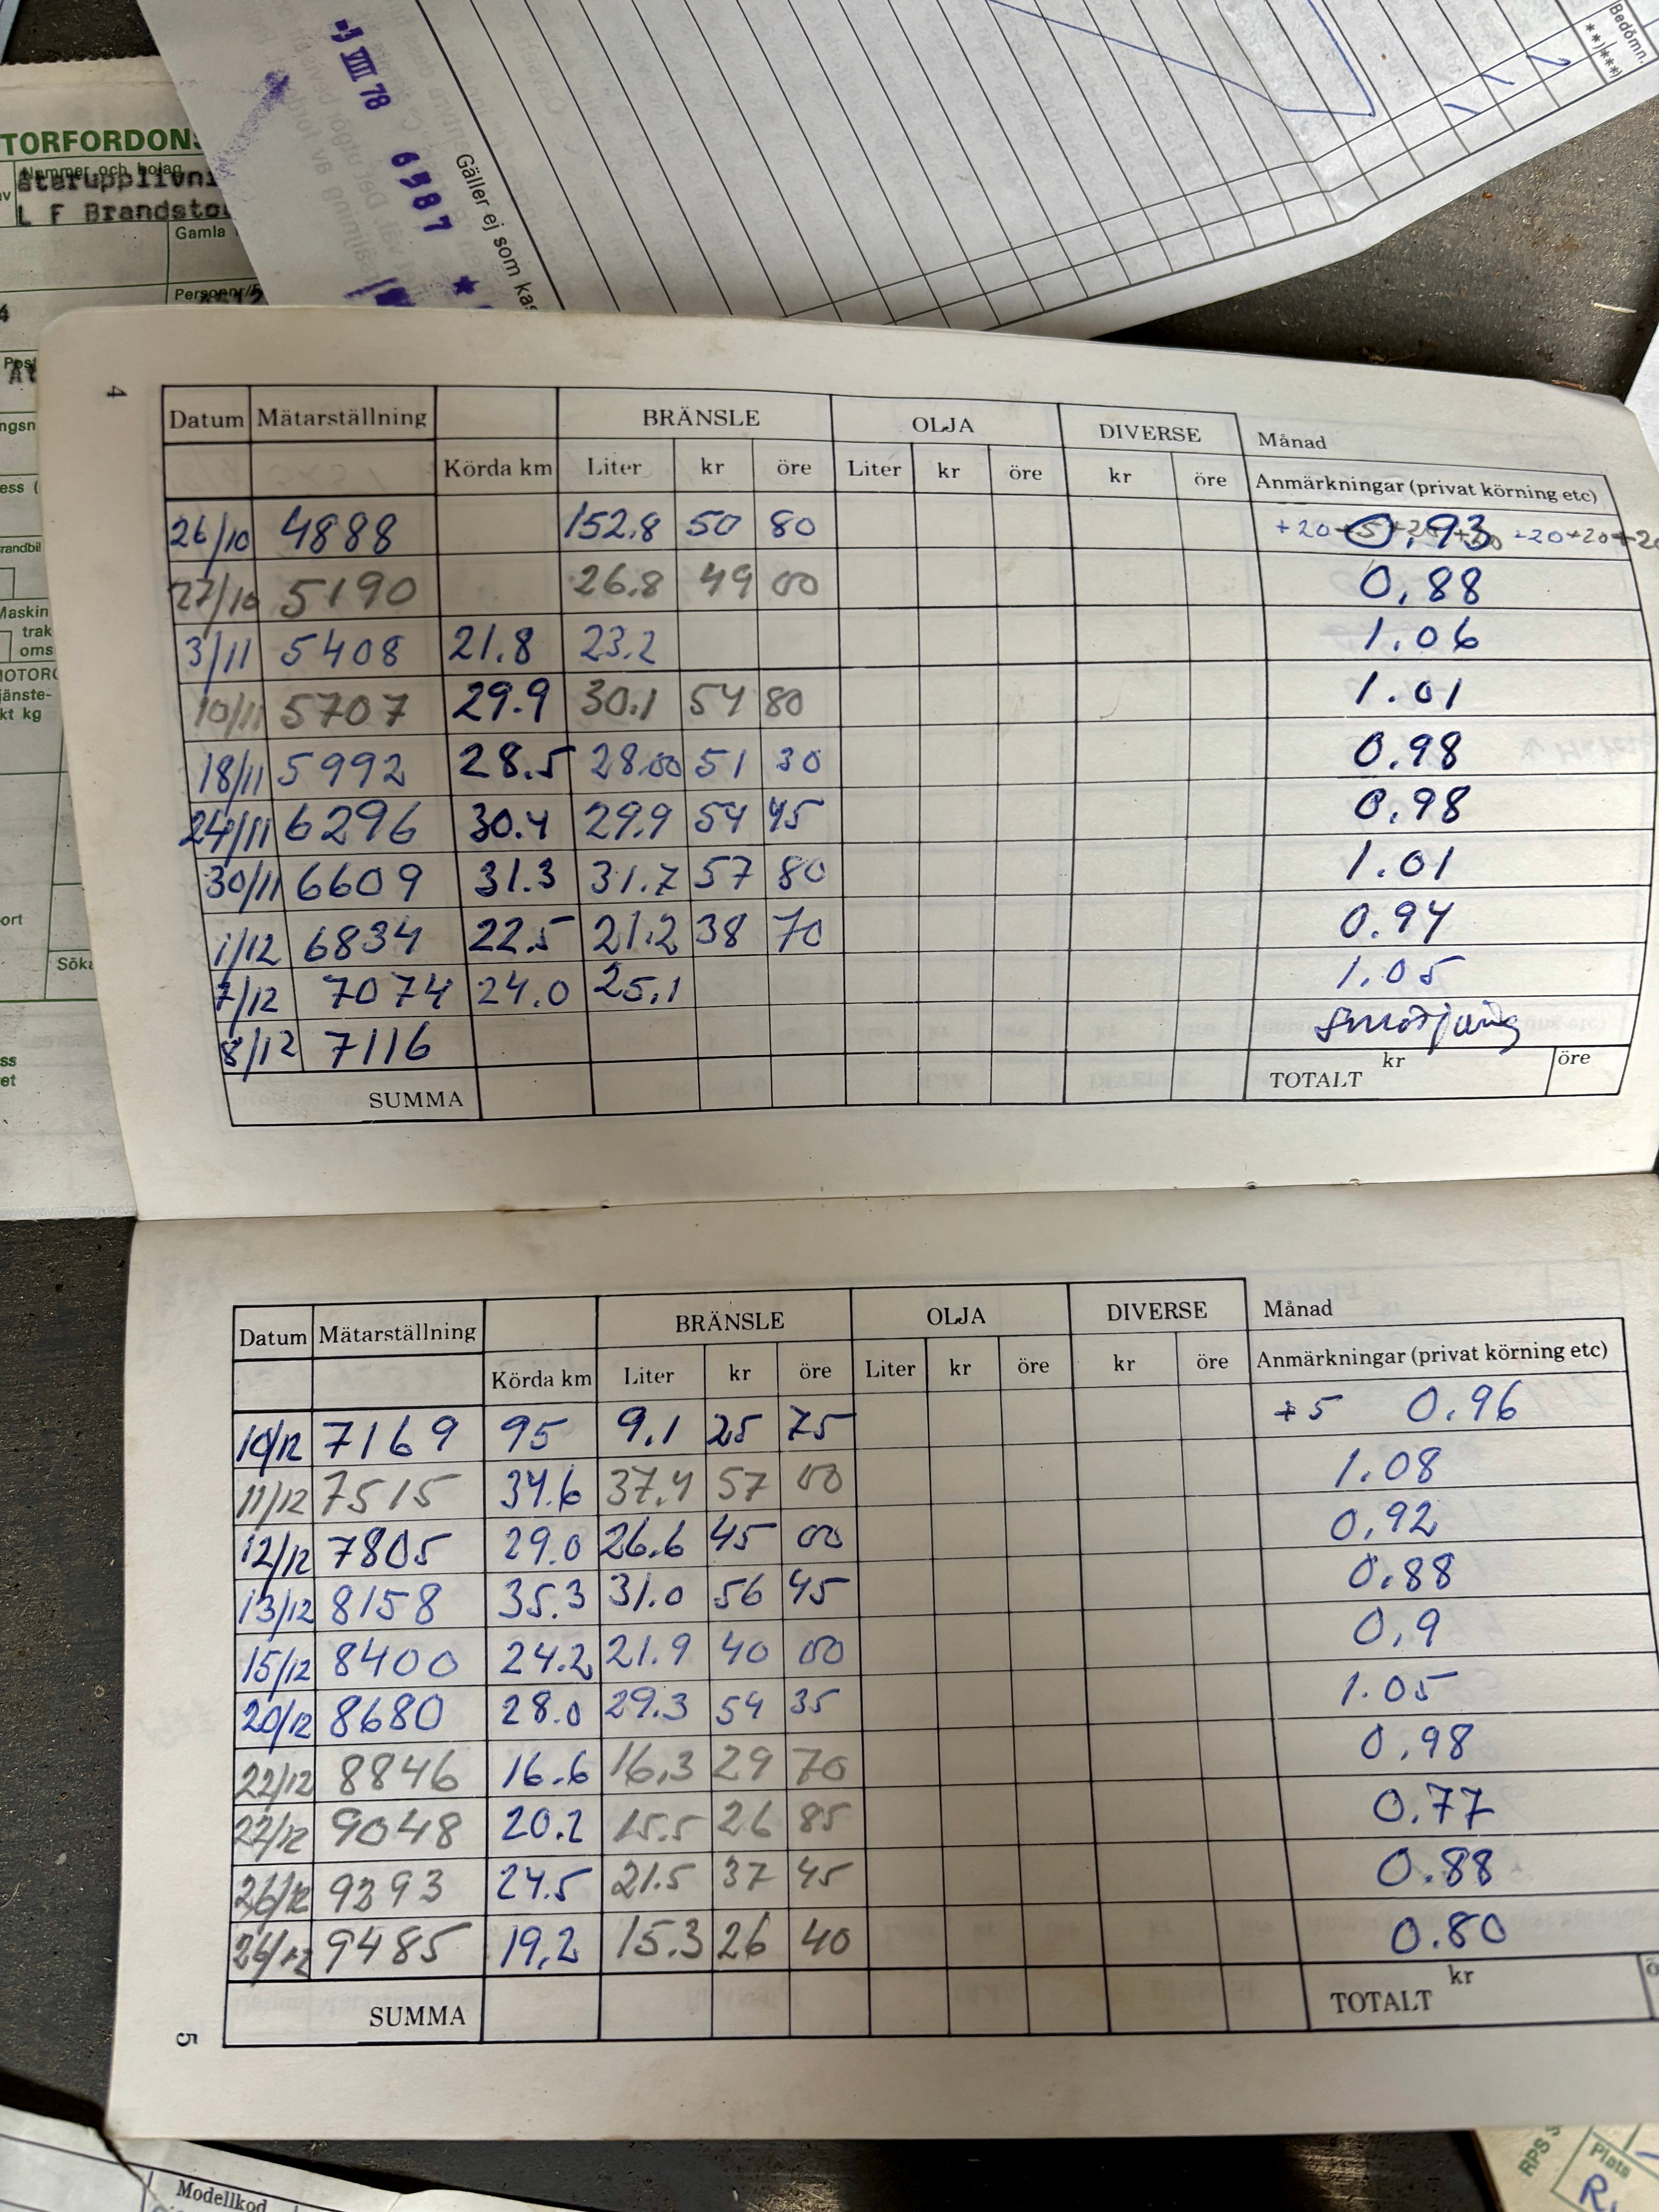 Bedömn.
**)***)
-9 VIII 78 6587 *
Gäller ej som kas
TORFORDONS
Nummer och bolag
återupplivni
L F Brandsto
Gamla
Personnr/
Post
ngsn
ess (
randbil
Maskin
trak
oms
MOTOR
jänste-
kt kg
ort
Söka
4
Datum Mätarställning BRÄNSLE OLJA DIVERSE Månad
Körda km Liter kr öre Liter kr öre kr öre Anmärkningar (privat körning etc)
26/10 4888 152.8 50 80 +20 0.93 +20+20+20
27/10 5190 26.8 49 00 0,88
3/11 5408 21.8 23.2 1.06
10/11 5707 29.9 30.1 54 80 1.01
18/11 5992 28.5 28.00 51 30 0.98
24/11 6296 30.4 29.9 54 45 0.98
30/11 6609 31.3 31.7 57 80 1.01
1/12 6834 22.5 21.2 38 70 0.94
7/12 7074 24.0 25.1 1.05
8/12 7116
SUMMA TOTALT kr öre
Datum Mätarställning BRÄNSLE OLJA DIVERSE Månad
Körda km Liter kr öre Liter kr öre kr öre Anmärkningar (privat körning etc)
10/12 7169 95 9.1 25 75 +5 0.96
11/12 7515 34.6 37.4 57 00 1.08
12/12 7805 29.0 26.6 45 00 0,92
13/12 8158 35.3 31.0 56 45 0.88
15/12 8400 24.2 21.9 40 00 0,9
20/12 8680 28.0 29.3 54 35 1.05
22/12 8846 16.6 16,3 29 70 0.98
22/12 9048 20.2 15.5 26 85 0.77
26/12 9293 24.5 21.5 37 45 0.88
26/12 9485 19.2 15.3 26 40 0.80
SUMMA TOTALT kr
5
Modellkod
RPS
Plats